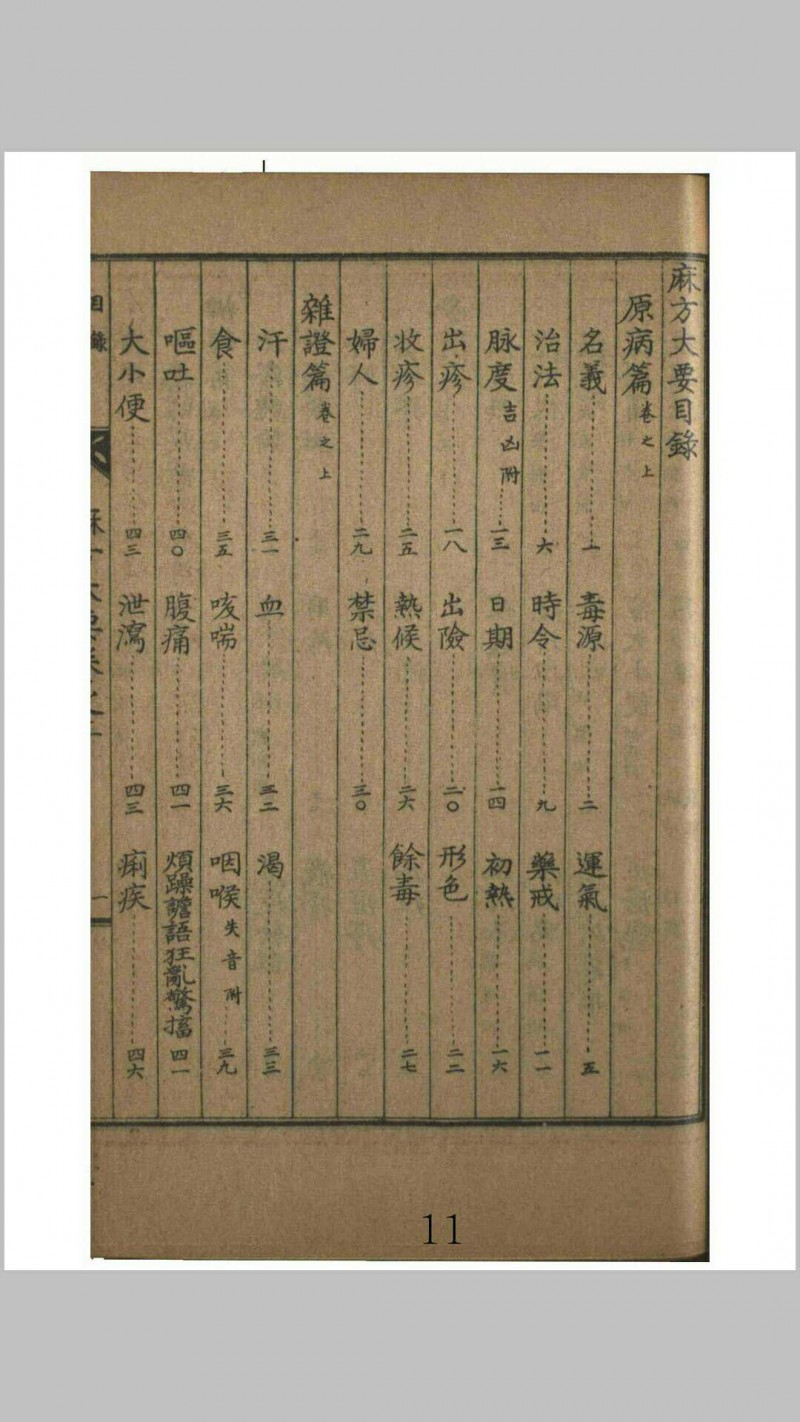 麻方大要目錄
原病篇 卷之上
名義 一 毒源 二 運氣 五
治法 六 時令 九 藥戒 一一
脉度 吉凶附 一三 日期 一四 初熱 一六
出疹 一八 出險 二〇 形色 二二
收疹 二五 熱候 二六 餘毒 二七
婦人 二九 禁忌 三〇
雜證篇 卷之上
汗 三一 血 三二 渴 三三
食 三五 咳喘 三六 咽喉 失音附 三九
嘔吐 四〇 腹痛 四一 煩躁譫語狂亂驚搐 四一
大小便 四三 泄瀉 四三 痢疾 四六
目錄
一
11